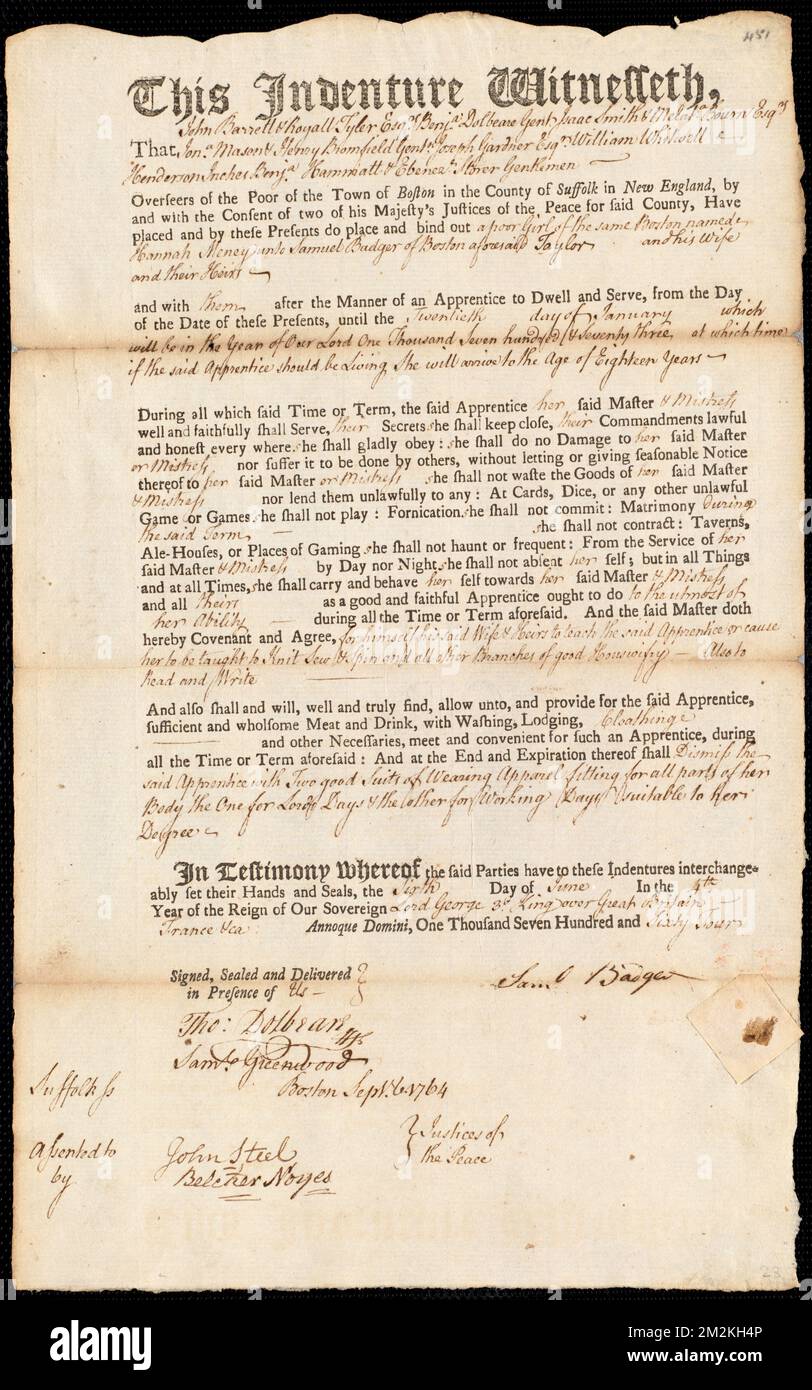 451
This Indenture Witnesseth,
John Barrett & Royall Tyler Esqrs Benja Dolbeare Gent Isaac Smith & Melatiah Bourn Esqrs
That, Jona Mason & Henry Bromfield Gent Joseph Gardner Esqr William Whitwell
Henderson Inches Benja Hammatt & Ebenezr Storer Gentlemen
Overseers of the Poor of the Town of Boston in the County of Suffolk in New England, by
and with the Consent of two of his Majesty's Justices of the Peace for said County, Have
placed and by these Presents do place and bind out a poor Girl of the same Boston named
Hannah Meney unto Samuel Badger of Boston aforesaid Taylor and his Wife
and their Heirs
and with them after the Manner of an Apprentice to Dwell and Serve, from the Day
of the Date of these Presents, until the Twentieth day of January which
will be in the Year of Our Lord One Thousand Seven hundred & Seventy three, at which time
if the said Apprentice should be Living She will arrive to the Age of Eighteen Years
During all which said Time or Term, the said Apprentice her said Master & Mistress
well and faithfully shall Serve, their Secrets she shall keep close, their Commandments lawful
and honest every where she shall gladly obey: she shall do no Damage to her said Master
or Mistress nor suffer it to be done by others, without letting or giving seasonable Notice
thereof to her said Master or Mistress she shall not waste the Goods of her said Master
& Mistress nor lend them unlawfully to any: At Cards, Dice, or any other unlawful
Game or Games she shall not play: Fornication she shall not commit: Matrimony during
the said Term she shall not contract: Taverns,
Ale-Houses, or Places of Gaming she shall not haunt or frequent: From the Service of her
said Master & Mistress by Day nor Night she shall not absent her self; but in all Things
and at all Times, she shall carry and behave her self towards her said Master & Mistress
and all theirs as a good and faithful Apprentice ought to do to the utmost of
her Ability during all the Time or Term aforesaid. And the said Master doth
hereby Covenant and Agree, for himself his said Wife & Heirs to teach the said Apprentice or cause
her to be taught to Knit Sew & Spin and all other Branches of good Houswifry Also to
Read and Write
And also shall and will, well and truly find, allow unto, and provide for the said Apprentice,
sufficient and wholsome Meat and Drink, with Washing, Lodging, Cloathinge
and other Necessaries, meet and convenient for such an Apprentice, during
all the Time or Term aforesaid: And at the End and Expiration thereof shall Dismiss the
said Apprentice with Two good Suits of Wearing Apparel fitting for all parts of her
Body the One for Lords Days & the other for Working Days suitable to her
Degree
In Testimony Whereof the said Parties have to these Indentures interchange-
ably set their Hands and Seals, the Sixth Day of June In the 4th
Year of the Reign of Our Sovereign Lord George 3d King over Great Britain
France &ca Annoque Domini, One Thousand Seven Hundred and Sixty Four
Signed, Sealed and Delivered
in Presence of Us
Saml Badger
Tho: Dolbeare
Saml Greenwood
Suffolk ss Boston Sept. 6 1764
Assented to
by
John Steel
Belcher Noyes
Justices of
the Peace
23
alamy
Image ID: 2M2KH4P
www.alamy.com